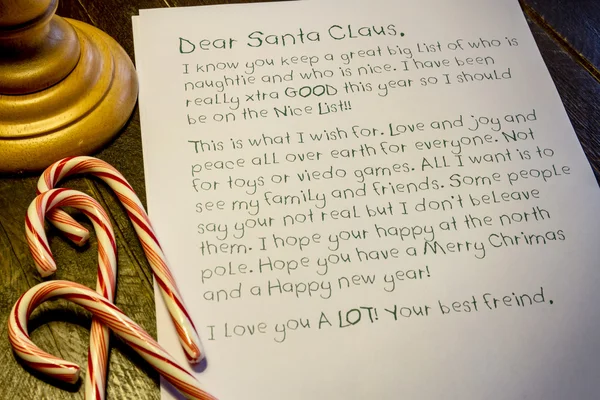 Dear Santa Claus,
I know you keep a great big list of who is
naughtie and who is nice. I have been
really xtra GOOD this year so I should
be on the Nice List!!
This is what I wish for. Love and joy and
peace all over earth for everyone. Not
for toys or viedo games. ALL I want is to
see my family and friends. Some people
say your not real but I don't beleave
them. I hope your happy at the north
pole. Hope you have a Merry Chrimas
and a Happy new year!
I Love you A LOT! Your best freind.